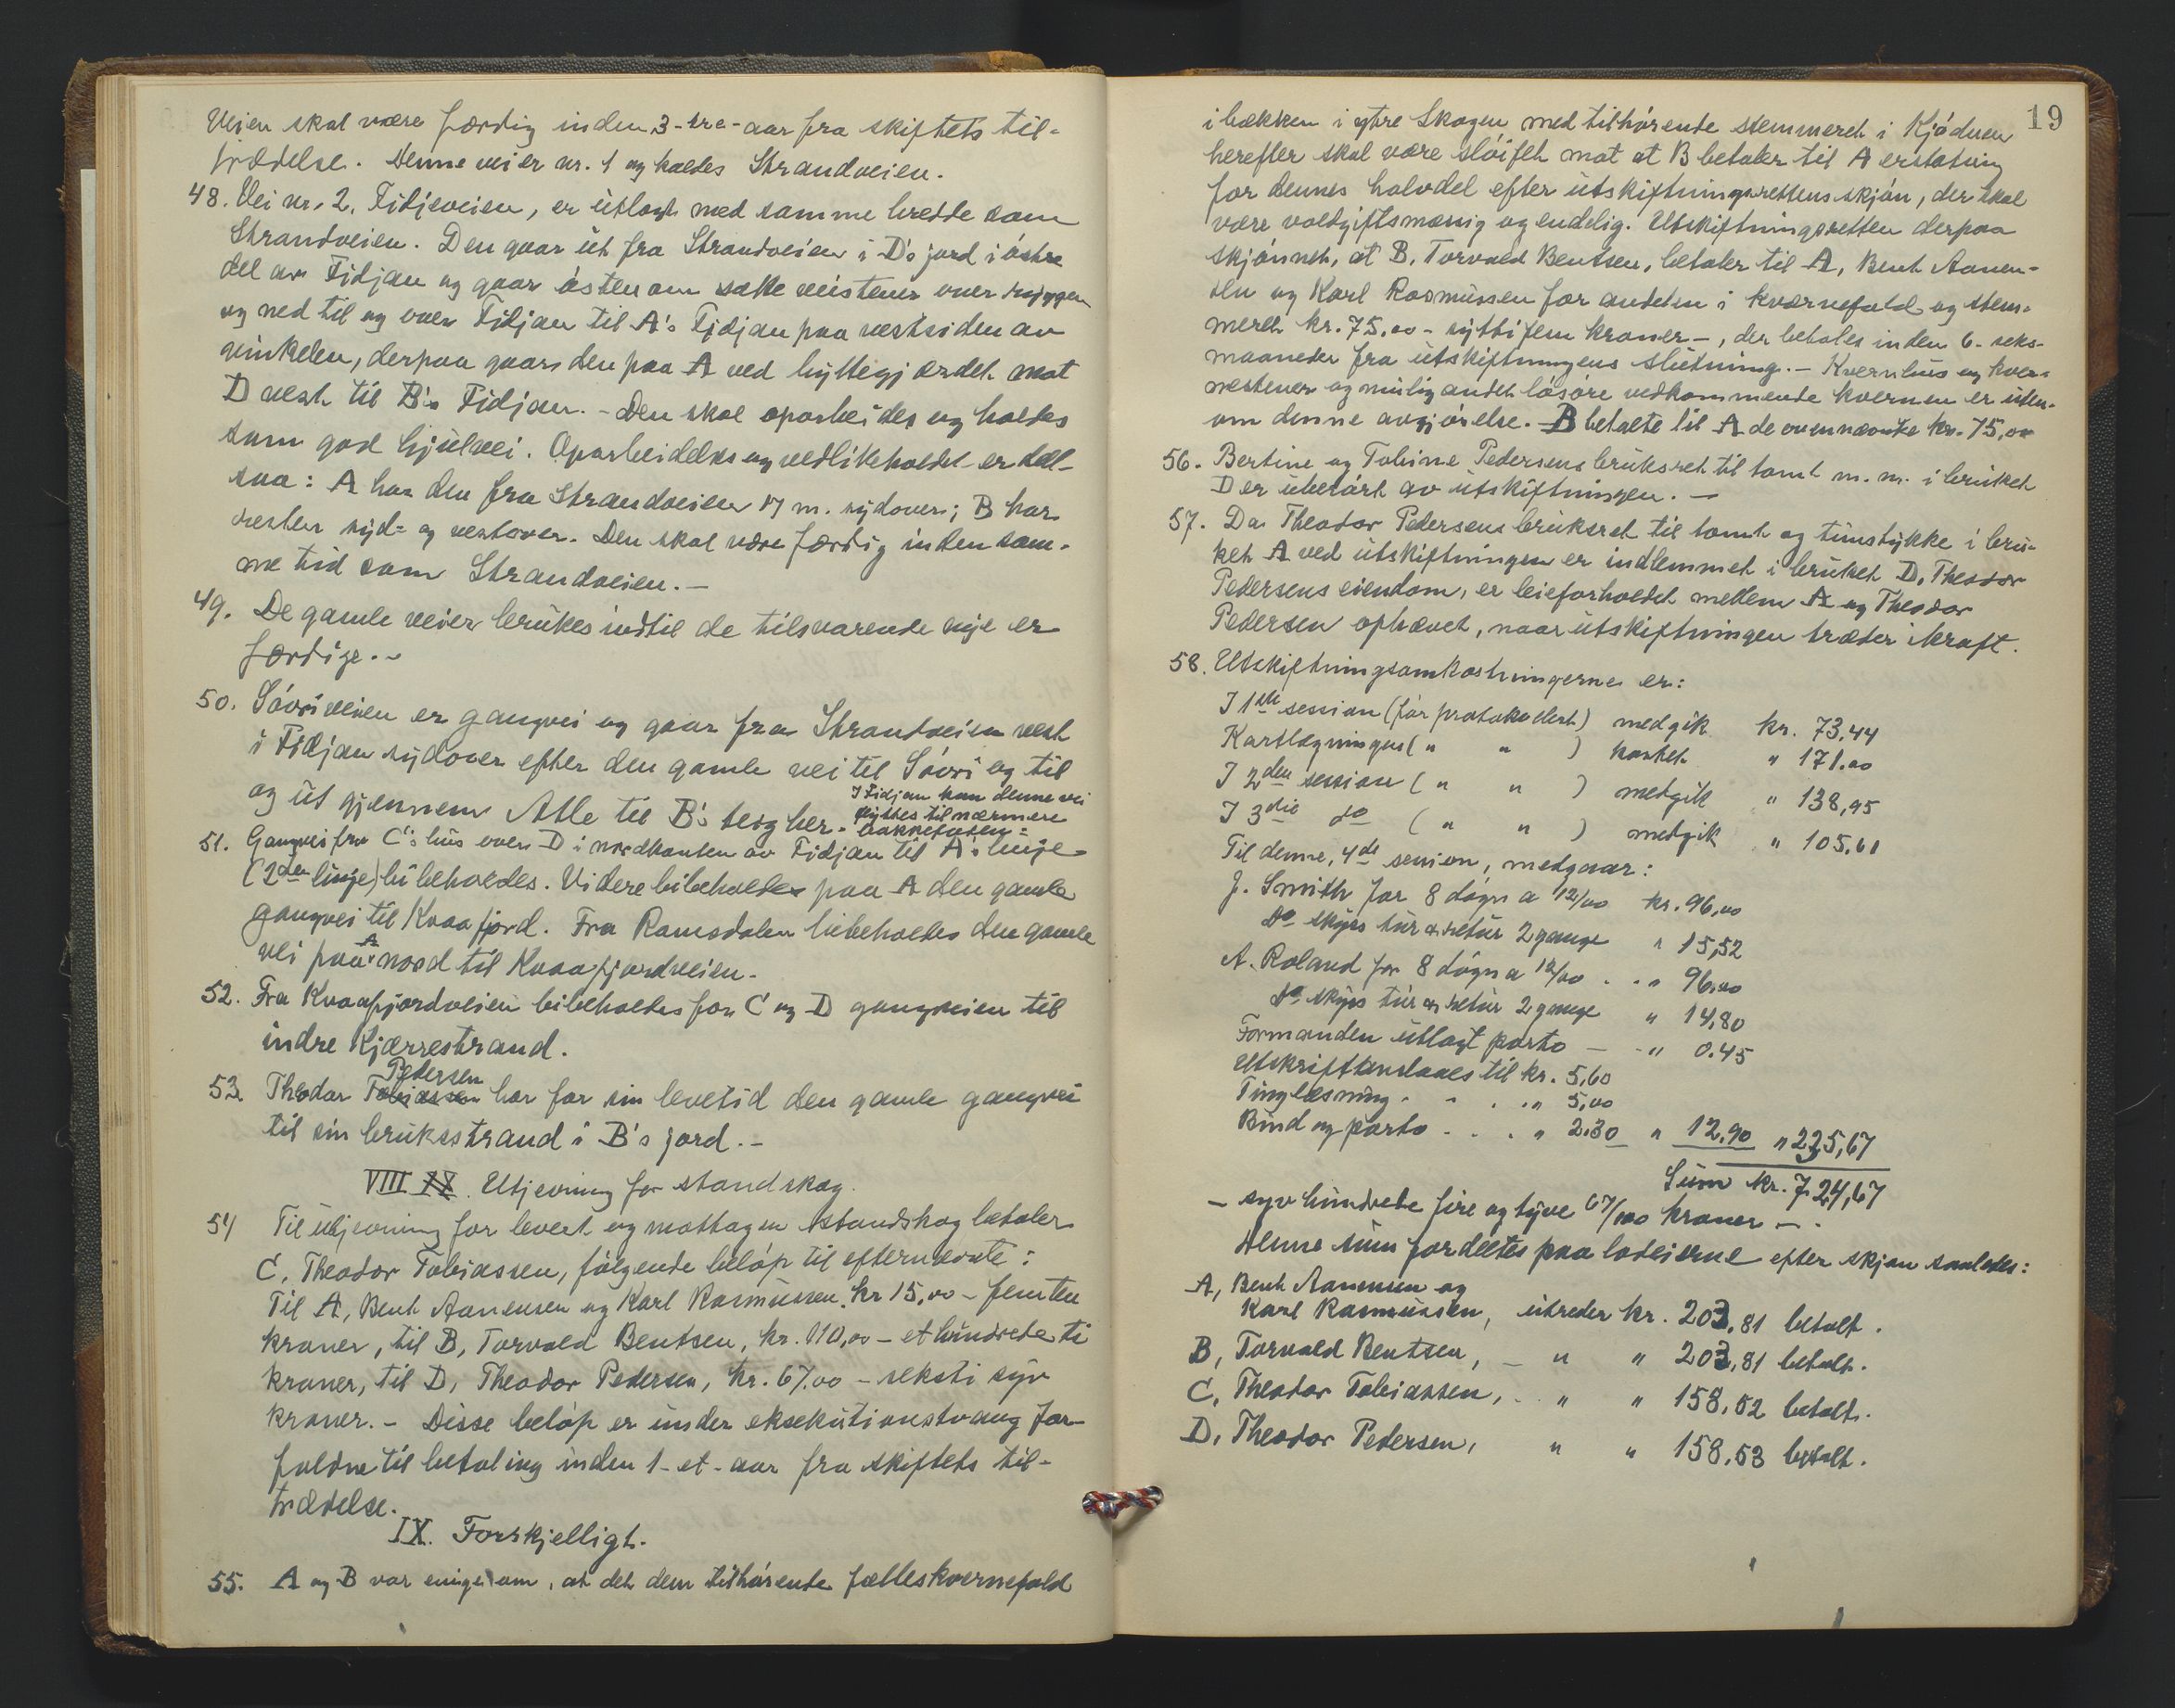 Veien skal være færdig inden 3-tre-aar fra skiftets til-
trædelse. Denne vei er nr. 1 og kaldes Strandveien.
48. Vei nr. 2, Fidjeveien, er utlagt med samme bredde som
Strandveien. Den gaar ut fra Strandveien i D's jord i østre
del av Fidjan og gaar østenom satte veistener over ryggen
og ned til og over Fidjan til A's Fidjan paa vestsiden av
vinkelen, derpaa gaar den paa A ved hyttegjærdet mot
D vest til B's Fidjan. - Den skal oparbeides og holdes
som god hjulvei. Oparbeidelse og vedlikeholdet er delt
saa: A har den fra Strandveien 17 m. sydover; B har
resten syd- og vestover. Den skal være færdig inden sam-
me tid som Strandveien. -
49. De gamle veier brukes indtil de tilsvarende nye er
færdige. -
50. Søvriveien er gangvei og gaar fra Strandveien vest
i Fidjan sydover efter den gamle vei til Søvri og til
og ut gjennem Atle til B's teig her. I Fidjan kan denne vei
flyttes til nærmere
bakkefoten. -
51. Gangvei fra C's hus over D i nordkanten av Fidjan til A's linje
(2den linje) bibeholdes. Videre bibeholdes paa A den gamle
gangvei til Kvaafjord. Fra Ramsdalen bibeholdes den gamle
vei paa A nord til Kvaafjordveien.
52. Fra Kvaafjordveien bibeholdes for C og D gangveien til
indre Kjærrestrand.
Pedersen
53. Theodor Tobiassen har for sin levetid den gamle gangvei
til sin bruksstrand i B's jord. -
VIII IX. Utjevning for standskog.
54 Til utjevning for levert og mottagen standskog betaler
C, Theodor Tobiassen, følgende beløp til efternevnte:
Til A, Bent Aanensen og Karl Rasmussen, kr 15,00 - femten
kroner, til B, Torvald Bentsen, kr. 110,00 - et hundrede ti
kroner, til D, Theodor Pedersen, kr. 67.00 - seksti syv
kroner. - Disse beløp er under eksekutionstvang for-
faldne til betaling inden 1-et-aar fra skiftets til-
trædelse.
IX. Forskjelligt.
55. A og B var enige om, at det dem tilhørende fælleskvernefald
19
i bækken i ytre Skogen med tilhørende stemmeret i Kjødnen
herefter skal være sløifet mot at B betaler til A erstatning
for dennes halvdel efter utskiftningsrettens skjøn, der skal
være voldgiftsmæssig og endelig. Utskiftningsretten derpaa
skjønnet, at B, Torvald Bentsen, betaler til A, Bent Aanen-
sen og Karl Rasmussen for andelen i kværnefald og stem-
meret kr. 75.00 - sytti fem kroner -, der betales inden 6-seks-
maaneder fra utskiftningens slutning. - Kvernhus og kver-
nestener og mulig andet løsøre vedkommende kvernen er uten-
om denne avgjørelse. B betalte til A de ovennævnte kr. 75,00
56. Bertine og Tobine Pedersens bruksret til tomt m. m. i bruket
D er uberørt av utskiftningen. -
57. Da Theodor Pedersens bruksret til tomt og tunstykke i bru-
ket A ved utskiftningen er indlemmet i bruket D, Theodor
Pedersens eiendom, er leieforholdet mellem A og Theodor
Pedersen ophævet, naar utskiftningen træder i kraft.
58. Utskiftningsomkostningerne er:
I 1ste session (før protokollert) medgik kr. 73,44
Kartlægningen ( " " ) kostet " 171.00
I 2den session ( " " ) medgik " 138,95
I 3die do ( " " ) medgik " 105.61
Til denne, 4de session, medgaar:
J. Smith for 8 døgn a 12/00 kr. 96,00
do skyss tur & retur 2 gange " 15,52
A. Roland for 8 døgn a 12/00 . . " 96,00
do skyss tur & retur 2 gange " 14,80
Formanden utlagt porto - - " 0.45
Utskrift anslaaes til kr. 5,60
Tinglæsning . . . . " 5,00
Bind og porto . . . " 2.30 " 12,90 " 235,67
Sum kr. 724,67
- syv hundrede fire og tyve 67/100 kroner - .
Denne sum fordeltes paa lodeierne efter skjøn saaledes:
A, Bent Aanensen og
Karl Rasmussen, utreder kr. 203,81 betalt.
B, Torvald Bentsen, - " " 203,81 betalt.
C, Theodor Tobiassen, . . " " 158,52 betalt.
D, Theodor Pedersen, " " 158,53 betalt.